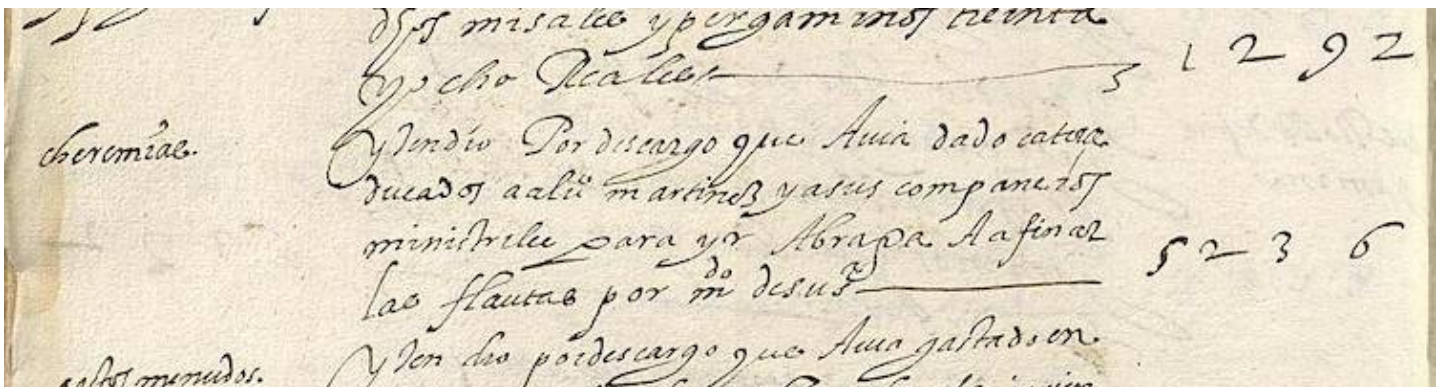 misales y pergaminos treinta
y ocho Reales 1292
cheremias. Yten dio Por descargo que Auia dado catorze
ducados a aluº martinez y a sus companeros
ministriles para yr A braga A afinar 5236
las flautas por mdo de su sª
gastos menudos. Yten dio por descargo que Auia gastado en